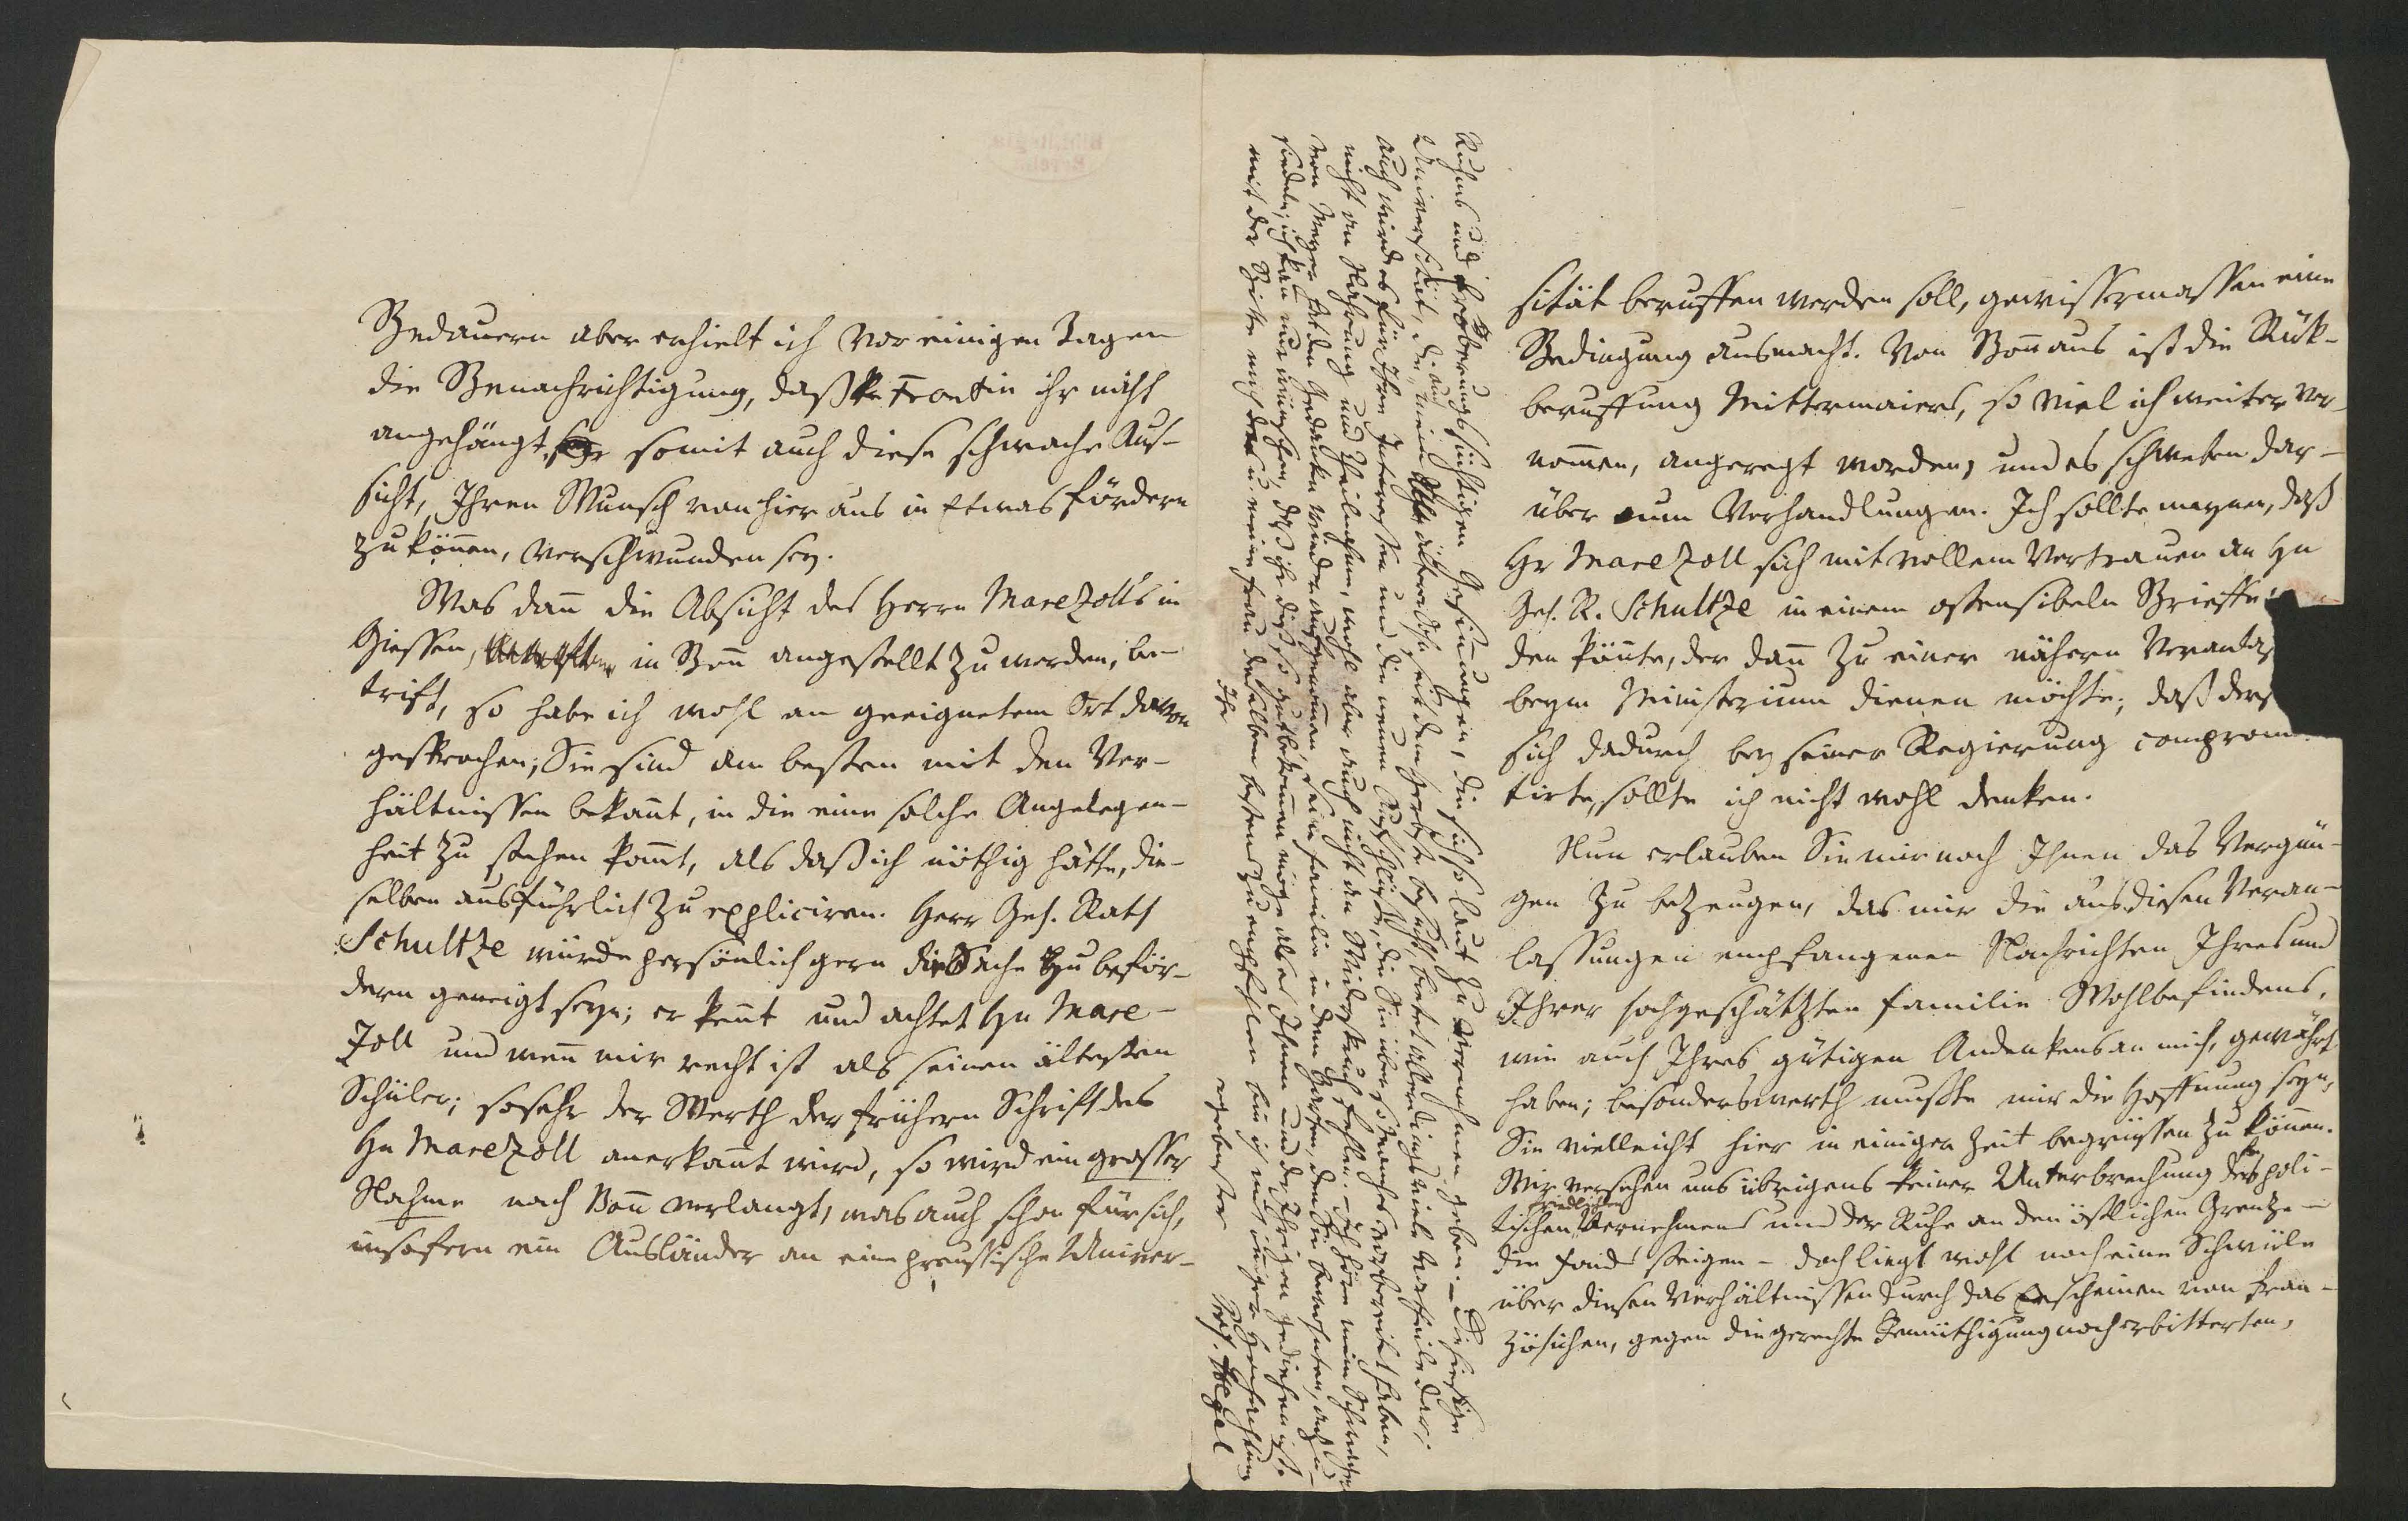 Bedauern aber erhielt ich vor einigen Tagen
die Benachrichtigung, daß Frontin ihr nicht
angehängt, somit auch diese schwache Aus-
sicht, Ihren Wunsch von hier aus in Etwas fördern
zu können, verschwunden sey.
Was dann die Absicht des Herrn Marezolls in
Giessen, in Bonn angestellt zu werden, be-
trifft, so habe ich wohl an geeignetem Ort davon
gesprochen; Sie sind am besten mit den Ver-
hältnissen bekannt, in die eine solche Angelegen-
heit zu stehen kommt, als daß ich nöthig hätte, die-
selben ausführlich zu expliciren. Herr Geh. Rath
Schultze würde persönlich gern die Sache zu beför-
dern geneigt seyn; er kennt und achtet Hn Mare-
zoll und wenn mir recht ist als seinen ältesten
Schüler; sosehr der Werth der frühern Schrift des
Hn Marezoll anerkannt wird, so wird ein grosser
Nahme nach Bonn verlangt, was auch schon für sich,
insofern ein Ausländer an eine preussische Univer-
sität beruffen werden soll, gewissermassen eine
Bedingung ausmacht. Von Bonn aus ist die Rük-
beruffung Mittermaiers, so viel ich weiter ver-
nommen, angeregt worden, und es schweben dar-
über nun Verhandlungen. Ich sollte meynen, daß
Hr Marezoll sich mit vollem Vertrauen an Hn
Geh. R. Schultze in einem ostensibeln Brieffe
den könnte, der dann zu einer nähern Veranlas
beym Ministerium dienen möchte; daß ders
sich dadurch bey seiner Regierung compromi
tirte, sollte ich nicht wohl denken.
Nun erlauben Sie mir noch Ihnen das Vergnü-
gen zu bezeugen, das mir die aus diesen Veran-
lassungen empfangenen Nachrichten Ihres und
Ihrer hochgeschätzten Familie Wohlbefindens,
wie auch Ihres gütigen Andenkens an mich, gewährt
haben; besonders werth mußte mir die Hoffnung seyn,
Sie vielleicht hier in einiger Zeit begrüssen zu können.
Wir versehen uns übrigens keiner Unterbrechung des poli-
tischen friedlichen Vernehmens und der Ruhe an den östlichen Grentze –
die Fonds steigen – doch liegt wohl noch eine Schwüle
über diesen Verhältnissen durch das Erscheinen von Fran-
zösischen, gegen die gerechte Demüthigung noch erbitterten,
Ruhms und Eroberungssüchtigen Gesinnungen, die sich so laut zu vernehmen geben. – Die hiesige
Universität, die auch mein älterer Sohn seit dem Herbste besucht, bietet allerdings viele Vortheile dar;
auch wird es für Ihre Interessen und die neuen Aufschlüsse, die Sie über so manches vorbereitet haben,
nicht an Nahrung und Theilnehmen, wohl aber auch nicht an Widerspruch fehlen. – Ich höre mein Schwager
von Meyer hat den Gedanken wieder aufgenommen, seine Familie in dem Garten, den Sie bewohnten, anzu-
siedeln; ich kann nur wünschen, daß ihr diß so gut bekommen möge als es Ihnen und den Ihrigen gediehen ist.
mit der Bitte mich und meine Frau denselben bestens zu empfehlen bin ich mit inniger Hochachtung
Ihr
ergebenster
Prof. Hegel